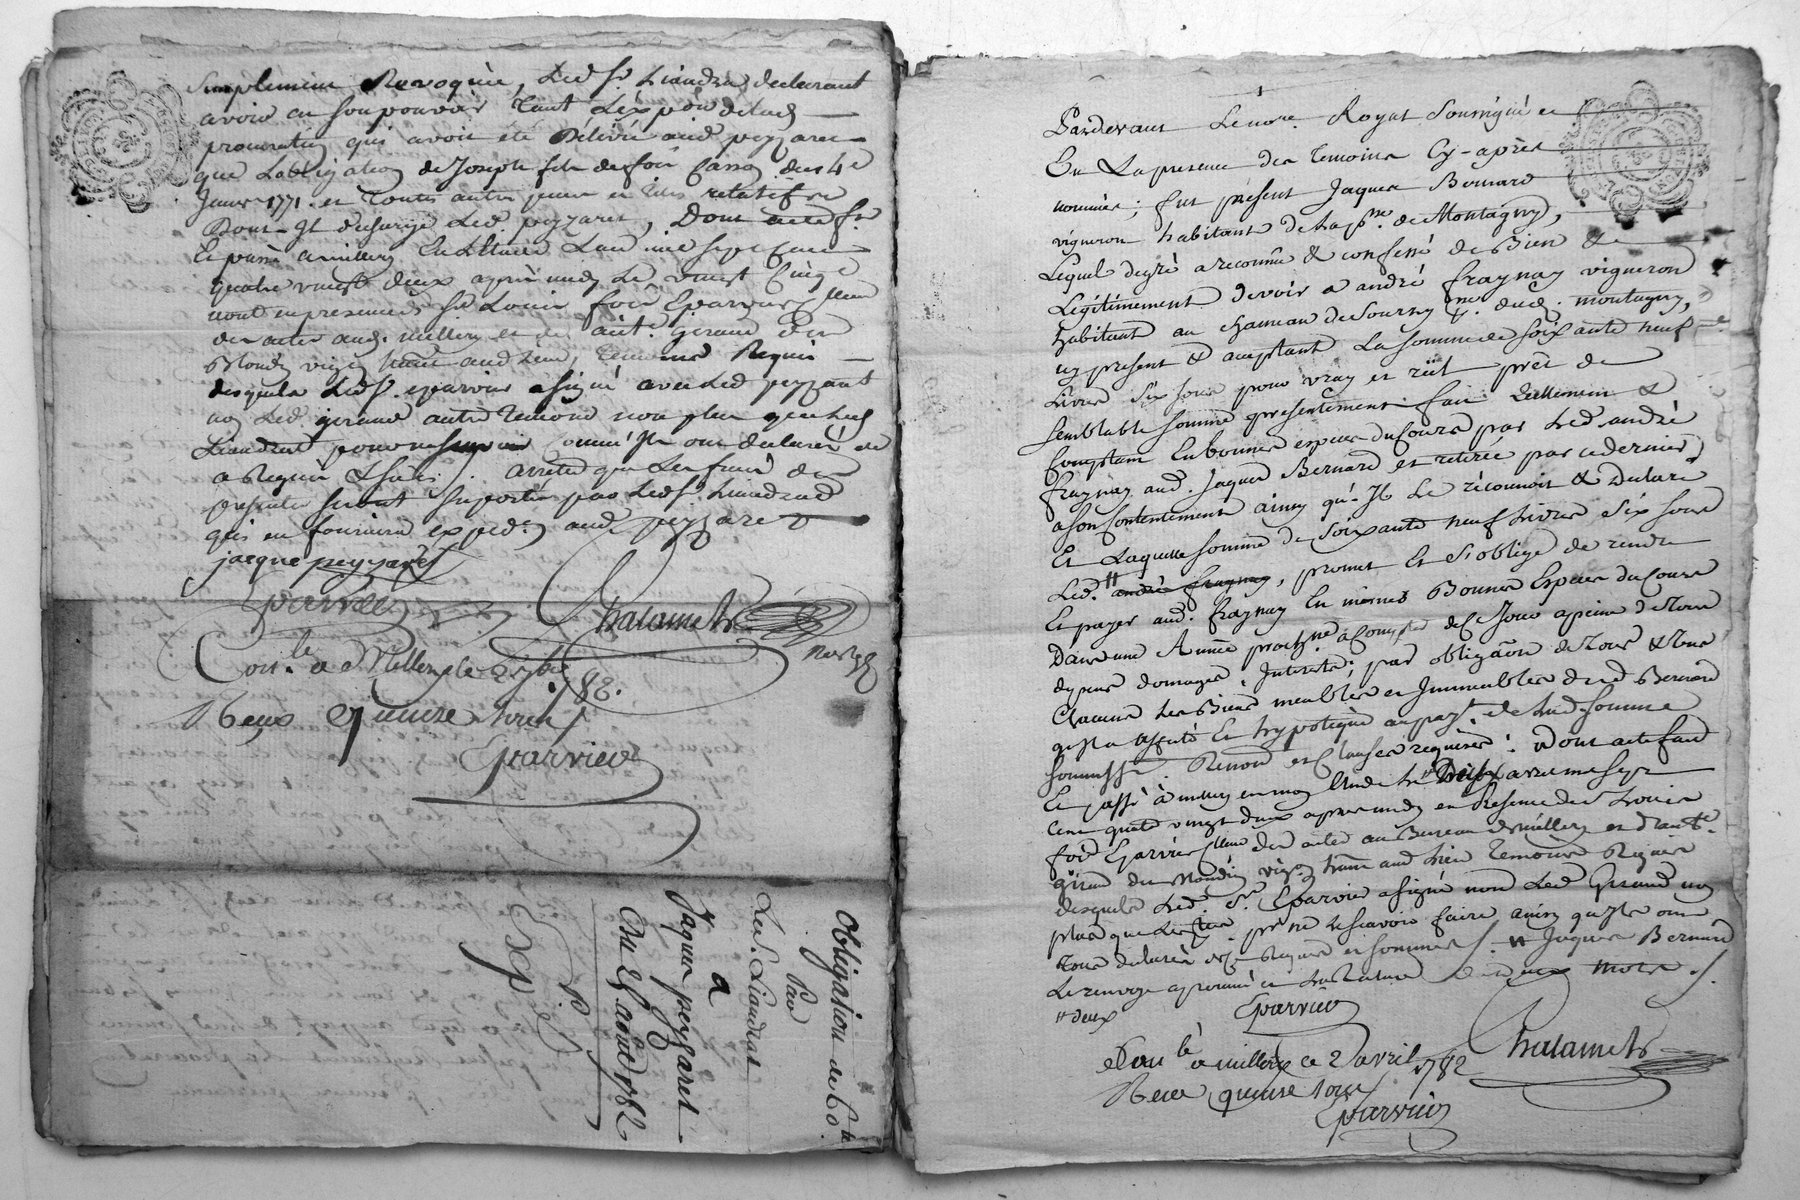 simplement Revoquée, Led. Sr. Liandras declarant
avoir en son pouvoir tant L'expon. dicelad.
procuration qui avoit été Délivré aud peyzaret
que Lobligation de Joseph fils de feu Cason des 4e
Janvr. 1771. et toutes autres pieces et titres relatifs
Dont Il decharge Led. peyzaret, Dont acte
et passé a millery En Etude Lan mil sept Cent
quatre vingt deux après midy Le vingt Cinq
aout en presence de Sr. Louis foÿ Eparvier
des actes aud. millery et de ant. Giraud dit
Blondin vign. aud Lieu, temoins Requis
desquels Led Sr. eparvier a signé avec Led peyzaret
non Led. giraud autre temoin non plus que Led
Liandrat pour ne scavoir comme Ils ont declaré de
ce Requis & Sommés. arreté que Les frais des
presentes seront suportés par Led Sr. Liandrat
qui en fournira exped. aud. peyzaret
jacque peyzaret
Eparvier
Chalamel
Con.le a Millery le 2 7bre 1782.
Reçu quinze sous
Eparvier
Obligation de 60 ll
Par
Led. Liandrat
a
Jaque peyzaret
Du 25 aout 1782
Exp
Pardevant Le no.re Royal Soussigné et
En La presence des temoins Cy-après
nommés; fut present Jaques Bernard
vigneron habitant de La p.sse de Montagny,
Lequel de gré a reconnu & confessé de Bien &
Légitimement devoir a andré fraynay vigneron
habitant au hameau de Sourzy p.sse dud. montagny,
cy present & acceptant La somme de soixante neuf
Livres Six sous pour vray et réel prêt de
semblable somme presentement fait réellement &
Comptant En bonnes especes du Cours par Led. andré
fraynay aud. Jaques Bernard et retirée par ce dernier
a son Contentement ainsy qu'Il Le réconnoit & Declare
Et Laquelle somme de soixante neuf Livres Six sous
Led. # andré fraynay, promet Et s'oblige de rendre
Et payer aud. fraynay En mêmes Bonnes Especes du Cours
Dans une Année proch.ne a Compter de Ce Jour a peine de tous
depens domages & Interets; par obligaôn de tous & Uns
Chacuns ses Biens meubles et Immeubles Led Bernard
qu'Il a affecté Et hypotequé au pay.t de Lad. somme
soumiss. Renon. et Clauses requises: Dont acte fait
Et passé à millery en mon Etude Le # Deux avril mil sept
Cent quatre vingt deux apres midy en Presence de Sr Louis
foÿ Eparvier des actes au Bureau de millery et d'ant.
giraud dit Blondin vig.n aud Lieu temoins Requis
desquels Led. Sr. Eparvier a signé non Led Giraud non
plus que Les parties pr. ne Le scavoir faire ainsy qu'Ils ont
tous declaré de ce Requis et sommés. # Jaques Bernard
Le renvoye approuvé et La rature de deux mots.
# deux
Eparvier
Chalamel
Con.lé a millery ce 2 avril 1782
Reçu quinze sous
Eparvier